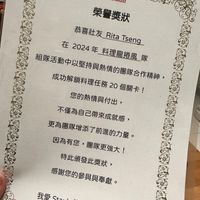 榮譽獎狀
恭喜社友 Rita Tseng
在 2024 年 料理龍捲風 隊
組隊活動中以堅持與熱情的團隊合作精神,
成功解鎖料理任務 20 個關卡!
您的熱情與付出,
不僅為自己帶來成就感,
更為團隊增添了前進的力量。
因為有您,團隊更強大!
特此頒發此獎狀,
感謝您的參與與奉獻。
我愛